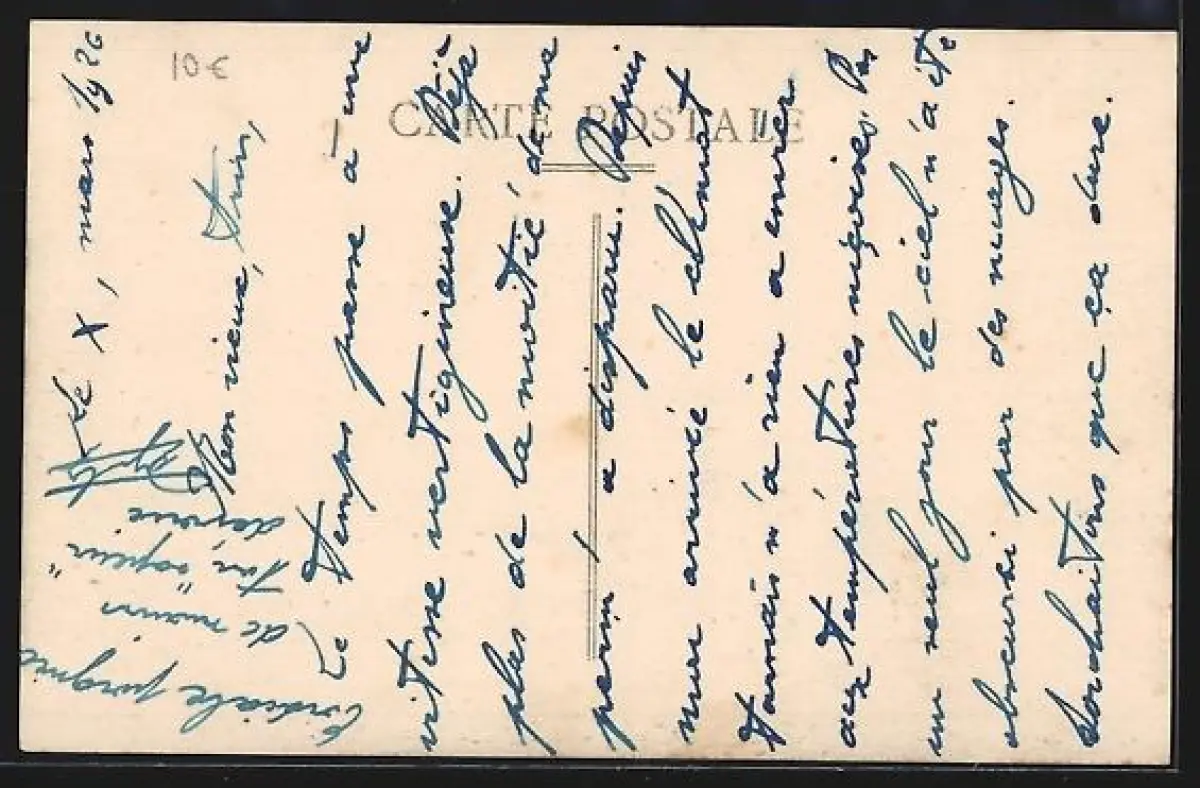 CARTE POSTALE
10 €
Le X, mars 1926
Mon vieux,
Le temps passe à une
vitesse vertigineuse. Déjà
plus de la moitié de ma
perm' a disparu. Depuis
mon arrivée le climat
tamais n'a rien à envier
aux températures niçoises. Pas
un seul jour le ciel n'a été
obscurci par des nuages.
Souhaitons que ça dure.
Cordiale poignée
de mains
Ton "copain"
dévoué